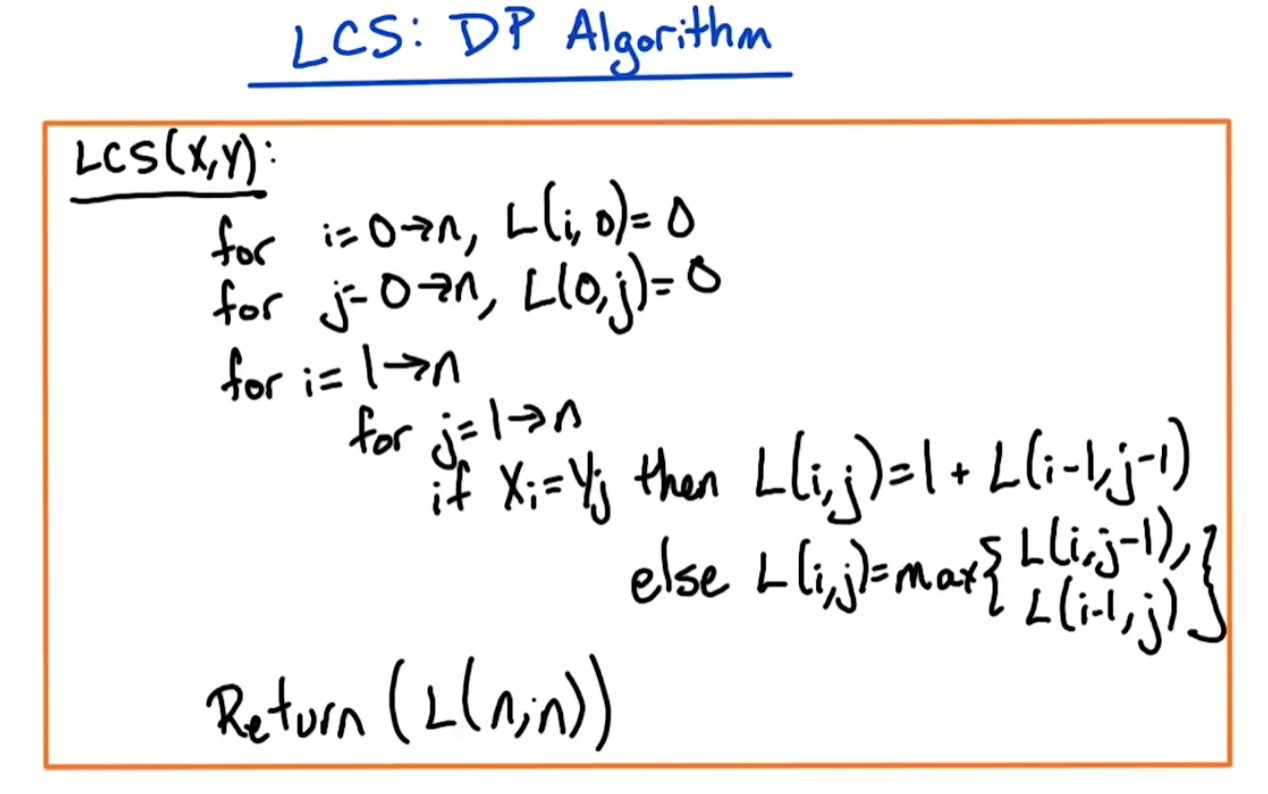 LCS: DP Algorithm
LCS(X,Y):
for i=0→n, L(i,0)=0
for j=0→n, L(0,j)=0
for i=1→n
for j=1→n
if Xi=Yj then L(i,j)=1+L(i-1,j-1)
else L(i,j)=max{L(i,j-1),
L(i-1,j)}
Return (L(n,n))